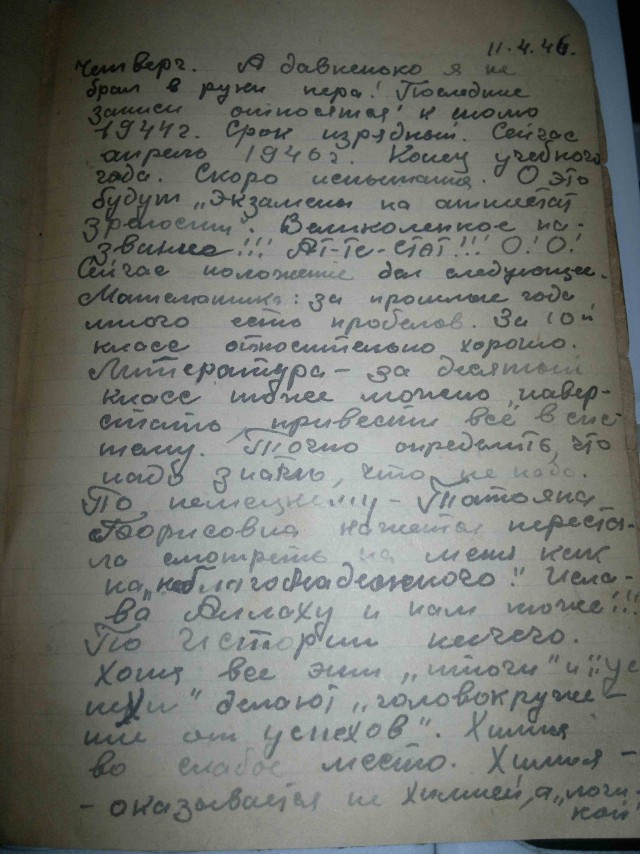 11.4.46.
Четверг. А давненько я не
брал в руки пера! Последние
записи относятся к
1944г. Срок изрядный. Сейчас
апрель 1946г. Конец учебного
года. Скоро испытания. О это
будут „Экзамены на аттестат
зрелости". Великолепное на-
звание!!! Ат-те-стат!!! О! О!
Сейчас положение дел следующее.
Математика: за прошлые года
много есть пробелов. За 10й
класс относительно хорошо.
Литература – за десятый
класс тоже можно навер-
стать привести всё в сис
тему. Точно определить, что
надо знать, что не надо.
По немецкому – Татьяна
Борисовна кажется переста-
ла смотреть на меня как
на „неблагонадежного". И сла-
ва Аллаху и нам тоже!!!
По Истории ничего.
Хотя все эти „итоги" и „ус
пехи" делают „головокруже-
ние от успехов". Химия
во слабое место. Химия –
- оказывается не химией, а „логи-
кой"